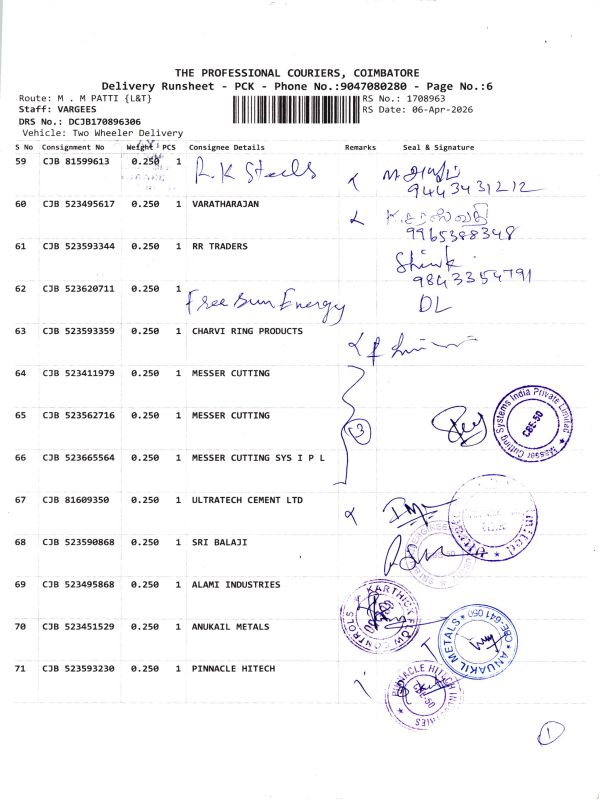 THE PROFESSIONAL COURIERS, COIMBATORE
Delivery Runsheet - PCK - Phone No.:9047080280 - Page No.:6
Route: M . M PATTI {L&T}
RS No.: 1708963
Staff: VARGEES
RS Date: 06-Apr-2026
DRS No.: DCJB170896306
Vehicle: Two Wheeler Delivery
S No Consignment No Weight PCS Consignee Details Remarks Seal & Signature
59 CJB 81599613 0.250 1 R.K Steels
9443431212
60 CJB 523495617 0.250 1 VARATHARAJAN
K. சரஸ்வதி
9965388348
61 CJB 523593344 0.250 1 RR TRADERS
9843354791
62 CJB 523620711 0.250 1 Free Sun Energy DL
63 CJB 523593359 0.250 1 CHARVI RING PRODUCTS
64 CJB 523411979 0.250 1 MESSER CUTTING
65 CJB 523562716 0.250 1 MESSER CUTTING 3
Messer Cutting Systems India Private Limited
CBE-50
66 CJB 523665564 0.250 1 MESSER CUTTING SYS I P L
67 CJB 81609350 0.250 1 ULTRATECH CEMENT LTD
68 CJB 523590868 0.250 1 SRI BALAJI
69 CJB 523495868 0.250 1 ALAMI INDUSTRIES
KARTHICK FLOW CONTROLS
70 CJB 523451529 0.250 1 ANUKAIL METALS
ANUAKIL METALS CBE-641 050
71 CJB 523593230 0.250 1 PINNACLE HITECH
PINNACLE HITECH INDUSTRIES
CBE-50
1